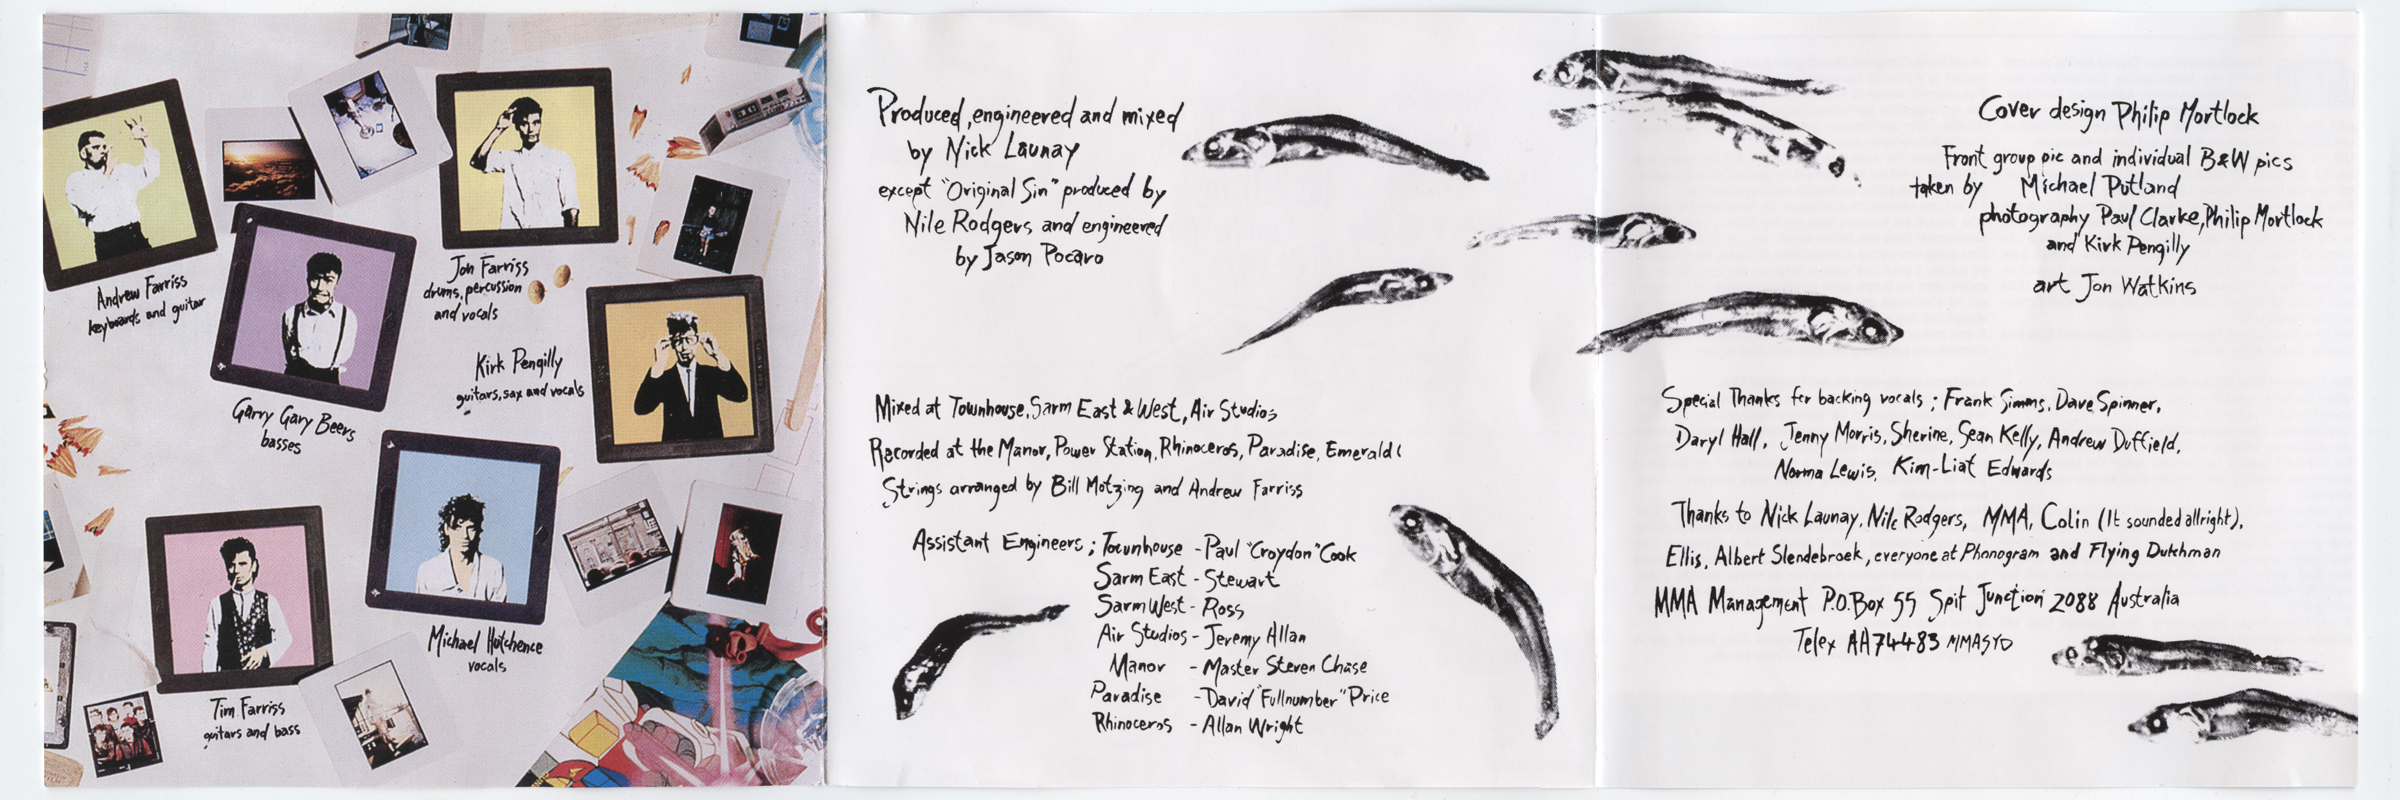 Andrew Farriss
keyboards and guitar
Jon Farriss
drums, percussion
and vocals
Garry Gary Beers
basses
Kirk Pengilly
guitars, sax and vocals
Michael Hutchence
vocals
Tim Farriss
guitars and bass
Produced, engineered and mixed
by Nick Launay
except "Original Sin" produced by
Nile Rodgers and engineered
by Jason Pocaro
Mixed at Townhouse, Sarm East & West, Air Studios
Recorded at the Manor, Power Station, Rhinoceros, Paradise, Emerald C
Strings arranged by Bill Motzing and Andrew Farriss
Assistant Engineers ; Townhouse - Paul "Croydon" Cook
Sarm East - Stewart
Sarm West - Ross
Air Studios - Jeremy Allan
Manor - Master Steven Chase
Paradise - David "Fullnumber" Price
Rhinoceros - Allan Wright
Cover design Philip Mortlock
Front group pic and individual B&W pics
taken by Michael Putland
photography Paul Clarke, Philip Mortlock
and Kirk Pengilly
art Jon Watkins
Special Thanks for backing vocals ; Frank Simms, Dave Spinner,
Daryl Hall, Jenny Morris, Sherine, Sean Kelly, Andrew Duffield,
Norma Lewis, Kim-Liat Edwards
Thanks to Nick Launay, Nile Rodgers, MMA, Colin (It sounded allright),
Ellis, Albert Slendebroek, everyone at Phonogram and Flying Dutchman
MMA Management P.O.Box 55 Spit Junction 2088 Australia
Telex AA74483 MMASYD